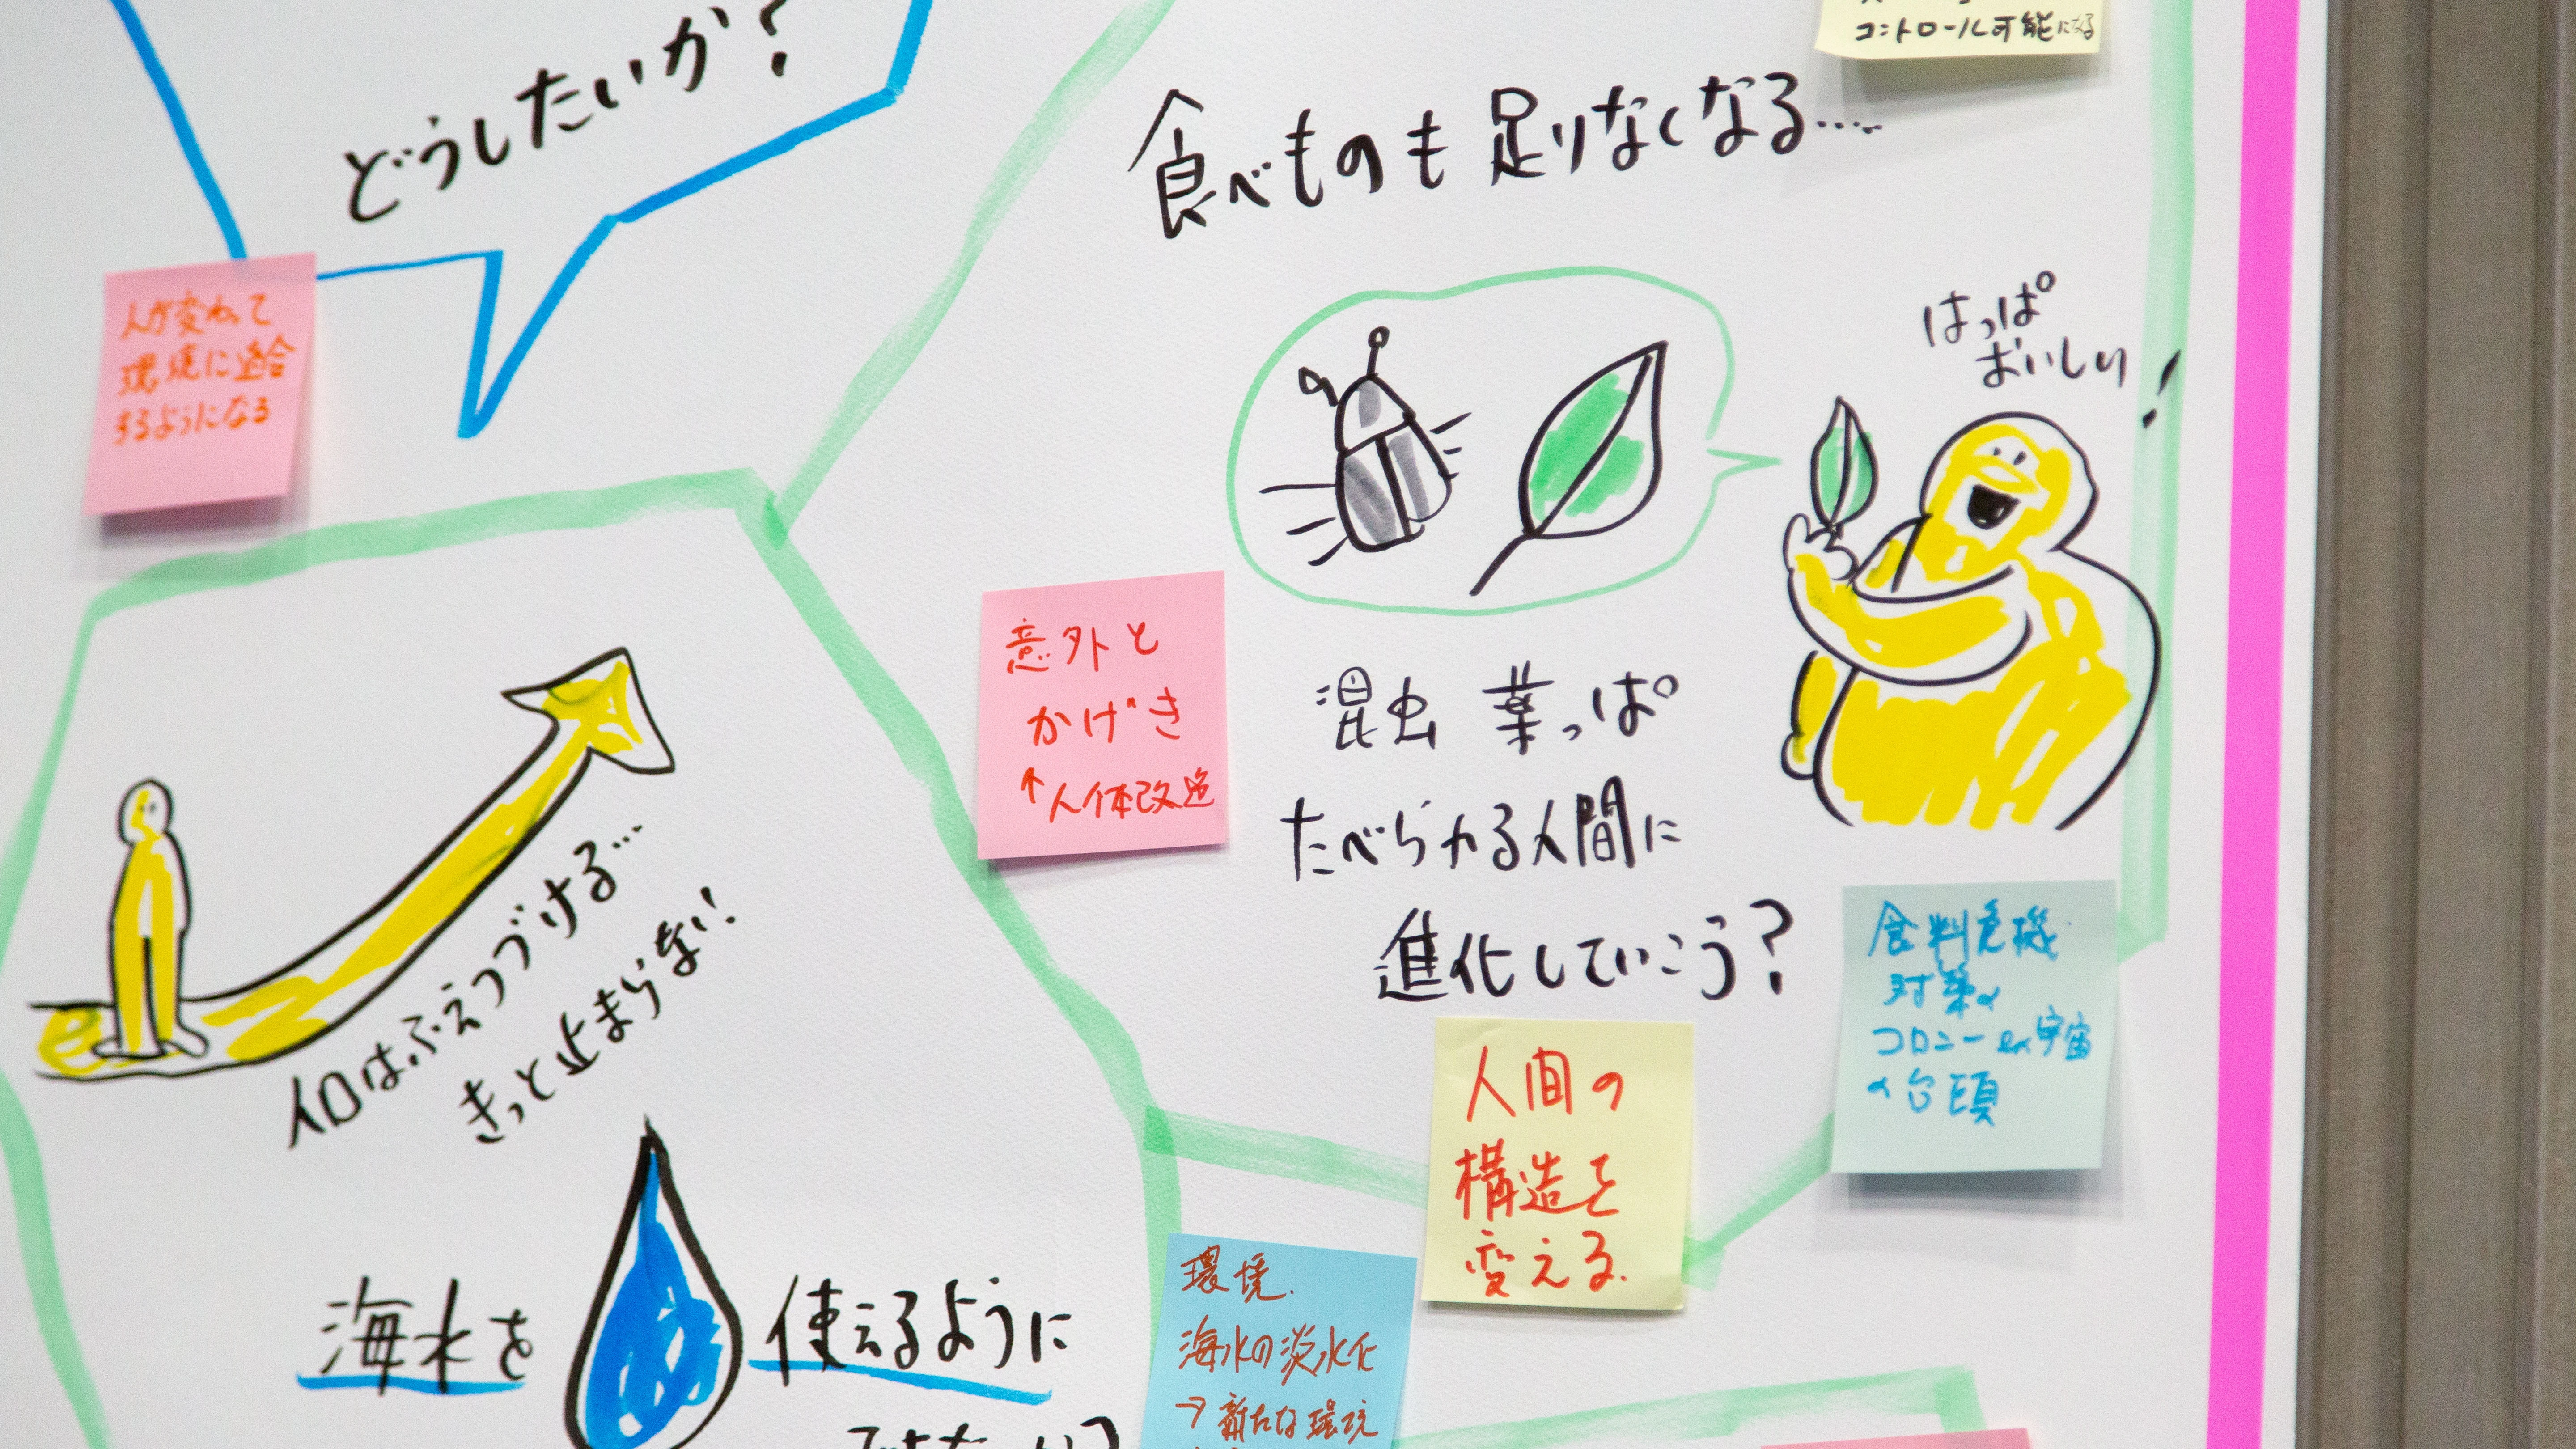 どうしたいか?
コントロール可能になる
食べものも足りなくなる.....
人が変わって
環境に適合
するようになる
はっぱ
おいしい!
意外と
かげき
↑人体改造
昆虫 葉っぱ
たべられる人間に
進化していこう?
人口はふえつづける...
きっと止まらない!
食料危機
対策の
コロニー ex宇宙
の台頭
人間の
構造を
変える.
海水を 使えるように
環境.
海水の淡水化
→新たな環境